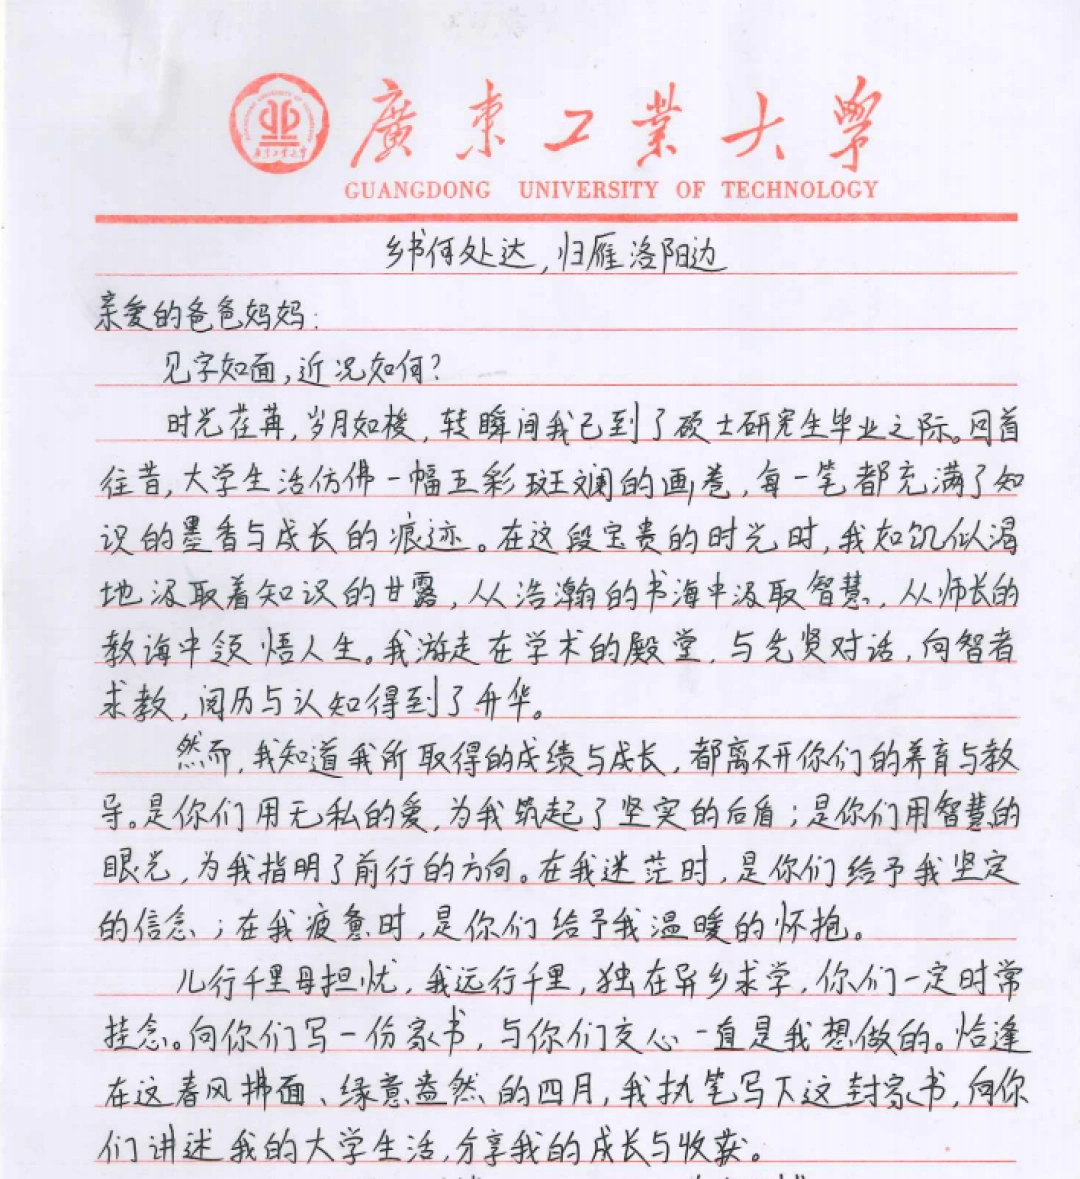 廣東工業大學
GUANGDONG UNIVERSITY OF TECHNOLOGY
乡书何处达，归雁洛阳边
亲爱的爸爸妈妈：
见字如面，近况如何？
时光荏苒，岁月如梭，转瞬间我已到了硕士研究生毕业之际。回首
往昔，大学生活仿佛一幅五彩斑斓的画卷，每一笔都充满了知
识的墨香与成长的痕迹。在这段宝贵的时光时，我如饥似渴
地汲取着知识的甘露，从浩瀚的书海中汲取智慧，从师长的
教诲中领悟人生。我游走在学术的殿堂，与先贤对话，向智者
求教，阅历与认知得到了升华。
然而，我知道我所取得的成绩与成长，都离不开你们的养育与教
导。是你们用无私的爱，为我筑起了坚实的后盾；是你们用智慧的
眼光，为我指明了前行的方向。在我迷茫时，是你们给予我坚定
的信念；在我疲惫时，是你们给予我温暖的怀抱。
儿行千里母担忧，我远行千里，独在异乡求学，你们一定时常
挂念。向你们写一份家书，与你们交心一直是我想做的。恰逢
在这春风拂面、绿意盎然的四月，我执笔写下这封家书，向你
们讲述我的大学生活，分享我的成长与收获。